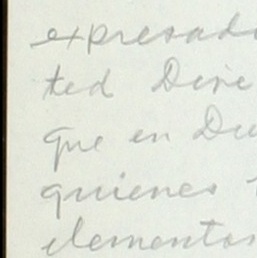 expresado
ted Dire
que en Du
quienes
elementos